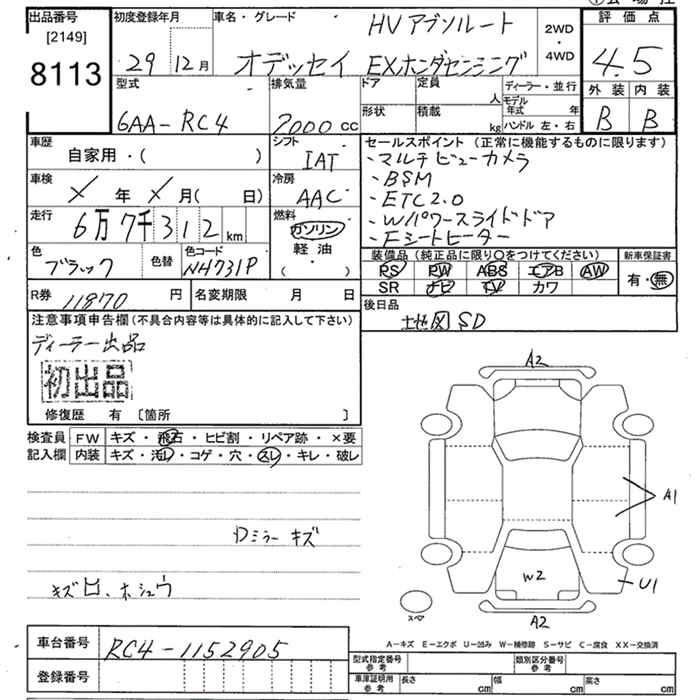 出品番号 [2149] 8113
初度登録年月 29 12月
車名・グレード HVアブソルート
オデッセイ EXホンダセンシング
2WD・4WD
評価点 4.5
外装 内装
B B
型式 6AA-RC4
排気量 2000cc
ドア 定員 人
形状 積載 kg
ディーラー・並行
モデル年式 年
ハンドル 左・右
車歴 自家用・( )
シフト IAT
車検 × 年 × 月( 日)
冷房 AAC
走行 6万7千312km
燃料 ガソリン
軽油・( )
色 ブラック 色替
色コード NH731P
R券 11870 円
名変期限 月 日
セールスポイント (正常に機能するものに限ります)
・マルチビューカメラ
・BSM
・ETC2.0
・Wパワースライドドア
・Fシートヒーター
装備品 (純正品に限り〇をつけてください)
PS PW ABS エアB AW
SR ナビ TV カワ
新車保証書
有・無
後日品
地図SD
注意事項申告欄(不具合内容等は具体的に記入して下さい)
ディーラー出品
初出品
修復歴 有 〔箇所 〕
検査員記入欄
FW キズ・飛石・ヒビ割・リペア跡・×要
内装 キズ・汚レ・コゲ・穴・スレ・キレ・破レ
Dミラーキズ
A2
A1
W2
U1
A2
スペア
A-キズ E-エクボ U-凹み W-補修跡 S-サビ C-腐食 XX-交換済
車台番号 RC4-1152905
登録番号
型式指定番号 参考
類別区分番号 参考
車庫証明用 参考 長さ cm 幅 cm 高さ cm